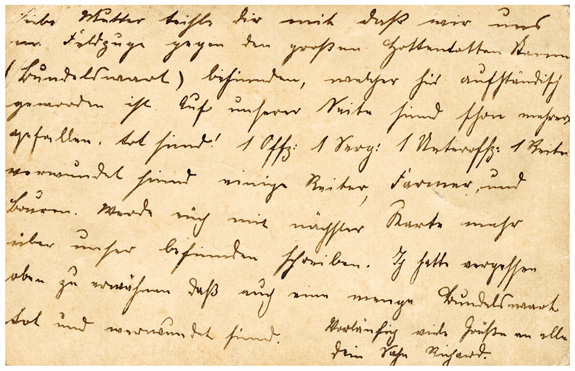 Liebe Mutter theile dir mit daß wir uns
im Feldzuge gegen den großen Hottentotten Stamm
(Bundelswart) befinden, welcher hir aufständisch
geworden ist. Auf unserer Seite sind schon mehrere
gefallen. tot sind! 1 Offz: 1 Serg: 1 Unteroffz: 1 Reiter
verwundet sind einige Reiter, Farmer, und
Buren. Werde euch mit nächster Karte mehr
über unser befinden schreiben. Ich hatte vergessen
oben zu erwähnen daß auch eine menge Bundelswart
tot und verwundet sind. Vorläufig viele Grüße an alle
dein Sohn Richard.